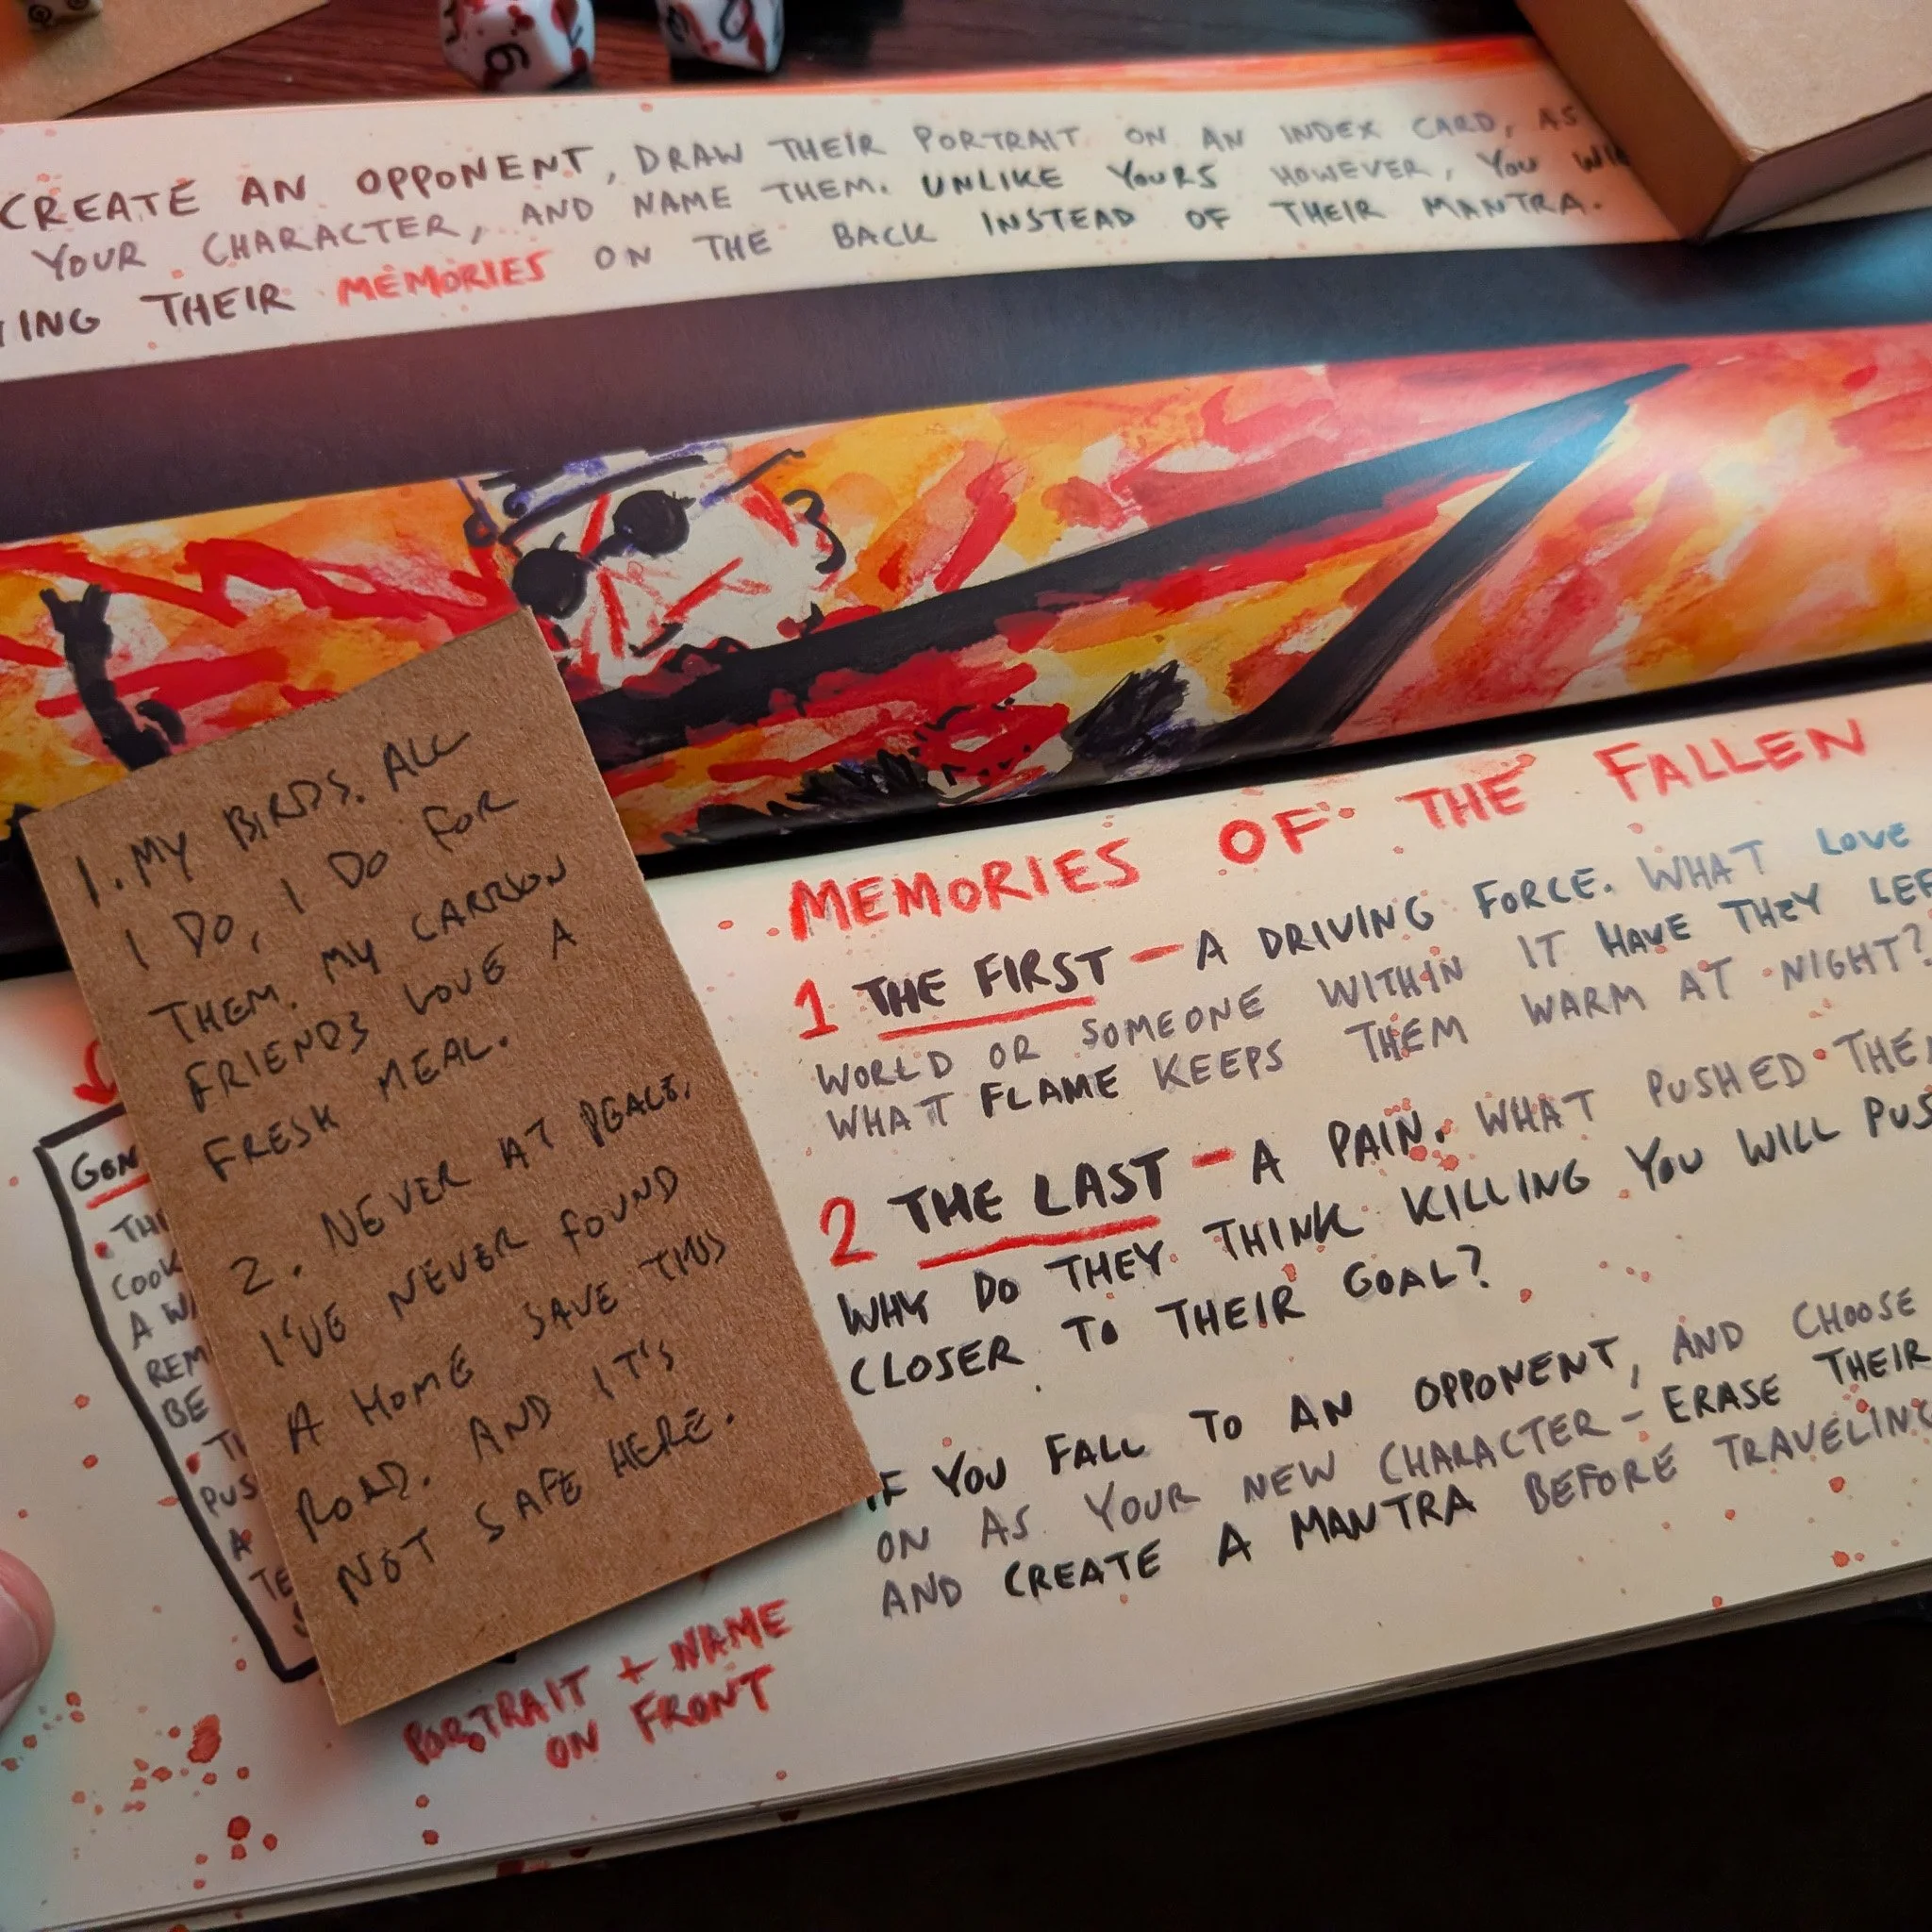 6
CREATE AN OPPONENT, DRAW THEIR PORTRAIT ON AN INDEX CARD, AS
YOUR CHARACTER, AND NAME THEM. UNLIKE YOURS HOWEVER, YOU
THEIR MEMORIES ON THE BACK INSTEAD OF THEIR MANTRA.
1. MY BIRDS. ALL
I DO, I DO FOR
THEM. MY CARRION
FRIENDS LOVE A
FRESH MEAL.
2. NEVER AT PEACE.
I'VE NEVER FOUND
A HOME SAVE THIS
ROAD. AND IT'S
NOT SAFE HERE.
MEMORIES OF THE FALLEN
1 THE FIRST - A DRIVING FORCE. WHAT LOVE
WORLD OR SOMEONE WITHIN IT HAVE THEY
WHAT FLAME KEEPS THEM WARM AT NIGHT?
2 THE LAST - A PAIN. WHAT PUSHED
WHY DO THEY THINK KILLING YOU WILL
CLOSER TO THEIR GOAL?
IF YOU FALL TO AN OPPONENT, AND CHOOSE
ON AS YOUR NEW CHARACTER - ERASE THEIR
AND CREATE A MANTRA BEFORE
BE
A
PORTRAIT + NAME
ON FRONT